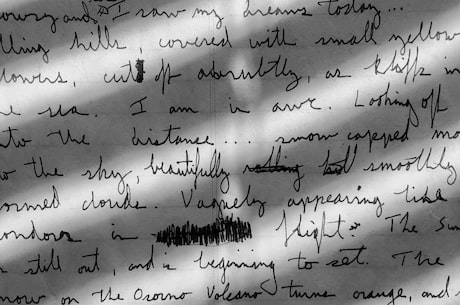 and I saw my dreams today...
lling hills, covered with small yellow
lowers, cut off abrubtly, as cliffs in
e sea. I am in awe. Looking off
nto the distance... snow capped mo
o the sky, beautifully smoothly
ormed clouds. Vaguely appearing like
ondors in flight. The sun
s still out, and is beginning to set. The
now on the Osorno Volcano turns orange, and